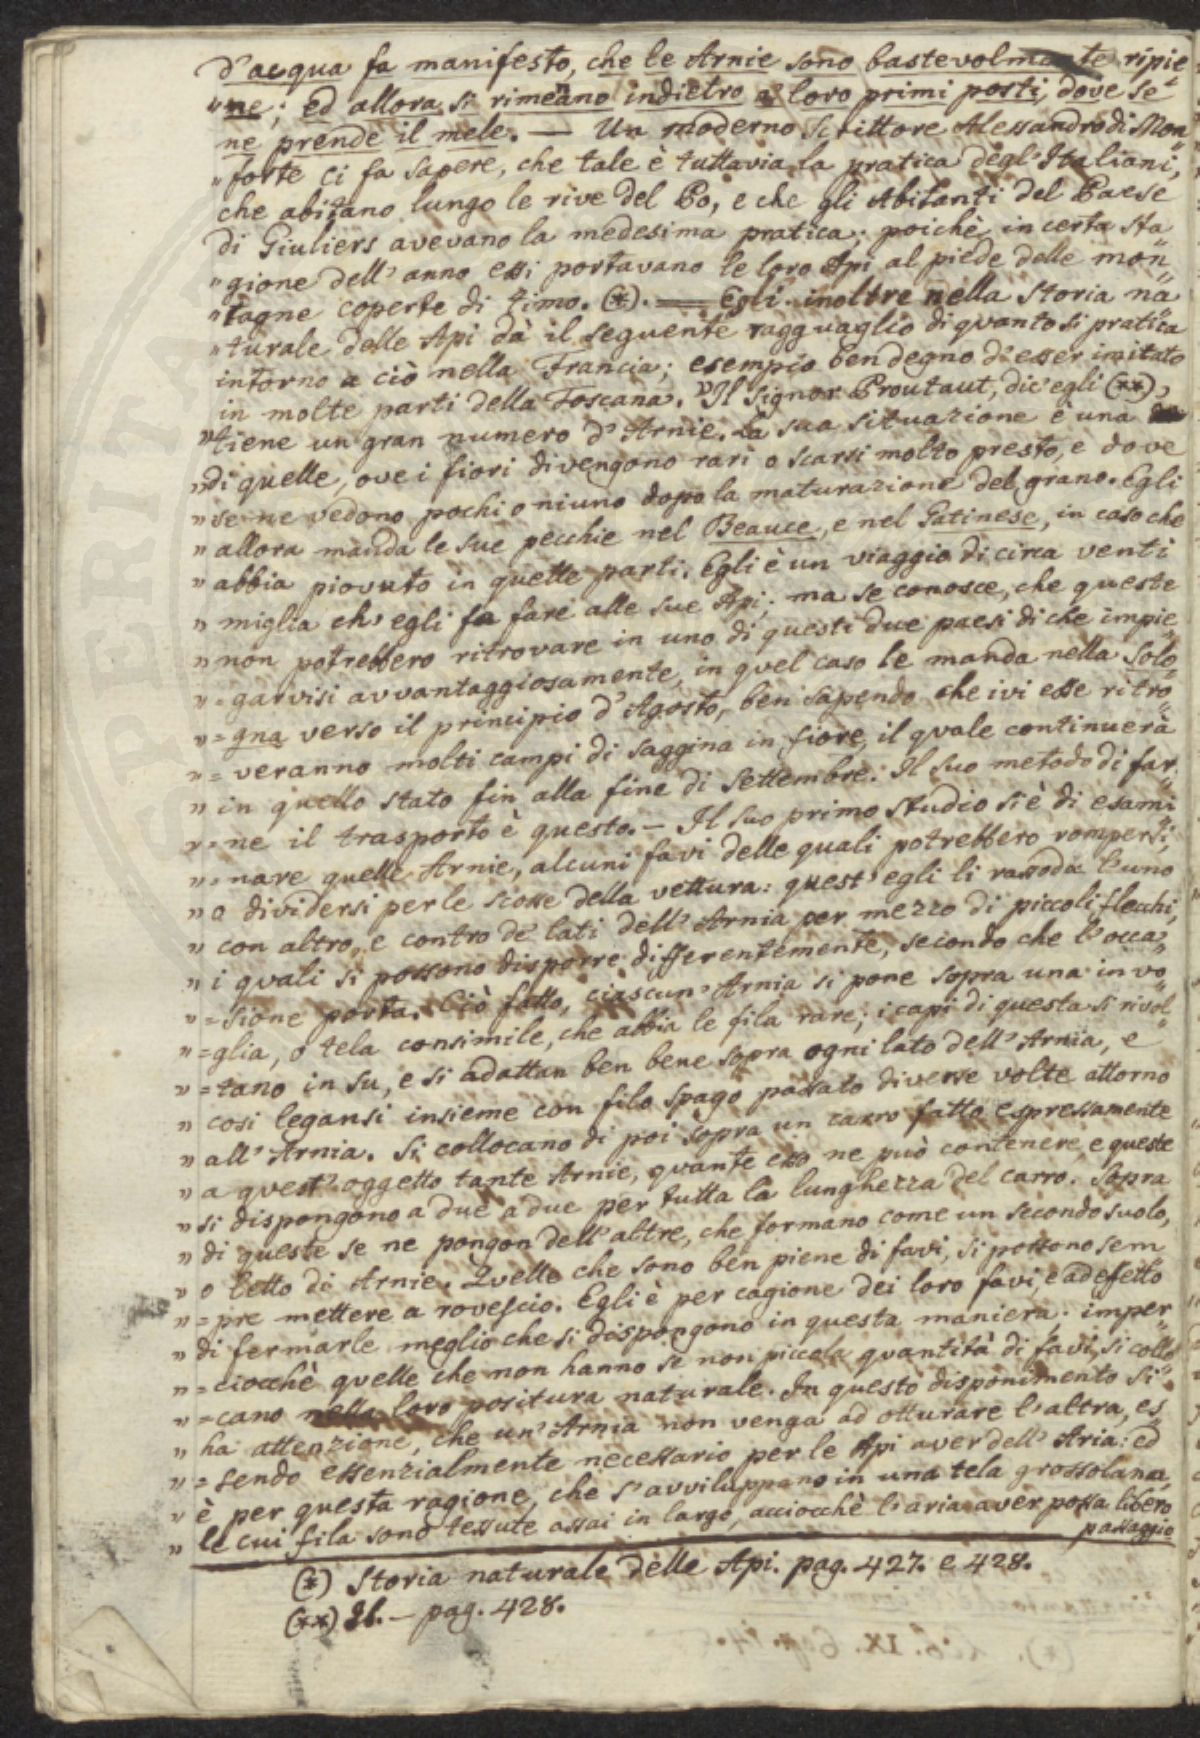 d'acqua fa manifesto, che le Arnie sono bastevolmente ripie
"ne; ed allora si rimenano indietro a' loro primi posti, dove se
ne prende il mele. — Un moderno Scrittore Alessandro di Mon
"forte ci fa sapere, che tale è tuttavia la pratica degl'Italiani,
che abitano lungo le rive del Po, e che gli Abitanti del Paese
di Giuliers avevano la medesima pratica; poichè in certa sta
"gione dell'anno essi portavano le loro Api al piede delle mon
"tagne coperte di timo. (*). = Egli inoltre nella Storia na
"turale delle Api dà il seguente ragguaglio di quanto si pratica
intorno a ciò nella Francia; esempio ben degno d'esser imitato
in molte parti della Toscana. "Il Signor Proutaut, dic'egli (**),
"tiene un gran numero d'Arnie. La sua situazione è una
"di quelle, ove i fiori divengono rari o scarsi molto presto, e dove
"se ne vedono pochi o niuno dopo la maturazione del grano. Egli
"allora manda le sue pecchie nel Beauce, e nel Gatinese, in caso che
"abbia piovuto in quelle parti. Egli è un viaggio di circa venti
"miglia ch'egli fa fare alle sue Api; ma se conosce, che queste
"non potrebbero ritrovare in uno di questi due paesi di che impie
"=garvisi avvantaggiosamente, in quel caso le manda nella Solo
"=gna verso il principio d'Agosto, ben sapendo che ivi esse ritro
"=veranno molti campi di saggina in fiore, il quale continuerà
"in quello stato fin alla fine di Settembre. Il suo metodo di far
"=ne il trasporto è questo. — Il suo primo studio si è di esami
"=nare quelle Arnie, alcuni favi delle quali potrebbero rompersi,
"o dividersi per le scosse della vettura: quest'egli li rassoda l'uno
"con altro, e contro de' lati dell'Arnia per mezzo di piccoli stecchi,
"i quali si possono disporre differentemente, secondo che l'occa
"=sione porta. Ciò fatto, ciascun'Arnia si pone sopra una invo
"=glia, o tela consimile, che abbia le fila rare; i capi di questa si rivol
"=tano in su, e si adattan ben bene sopra ogni lato dell'Arnia, e
"così legansi insieme con filo spago passato diverse volte attorno
"all'Arnia. Si collocano di poi sopra un carro fatto espressamente
"a quest'oggetto tante Arnie, quante esso ne può contenere, e queste
"si dispongono a due a due per tutta la lunghezza del carro. Sopra
"di queste se ne pongon dell'altre, che formano come un secondo suolo,
"o letto di Arnie. Quelle che sono ben piene di favi, si possono sem
"=pre mettere a rovescio. Egli è per cagione dei loro favi, e ad effetto
"di fermarle meglio che si dispongono in questa maniera; imper
"=ciocchè quelle che non hanno se non piccola quantità di favi, si collo
"=cano nella loro positura naturale. In questo disponimento si
"ha attenzione, che un'Arnia non venga ad otturare l'altra, es
"=sendo essenzialmente necessario per le Api aver dell'Aria: ed
"è per questa ragione, che s'avviluppano in una tela grossolana,
"le cui fila sono tessute assai in largo, acciocchè l'aria aver possa libero
passaggio
(*) Storia naturale delle Api. pag. 427. e 428.
(**) Id. — pag. 428.